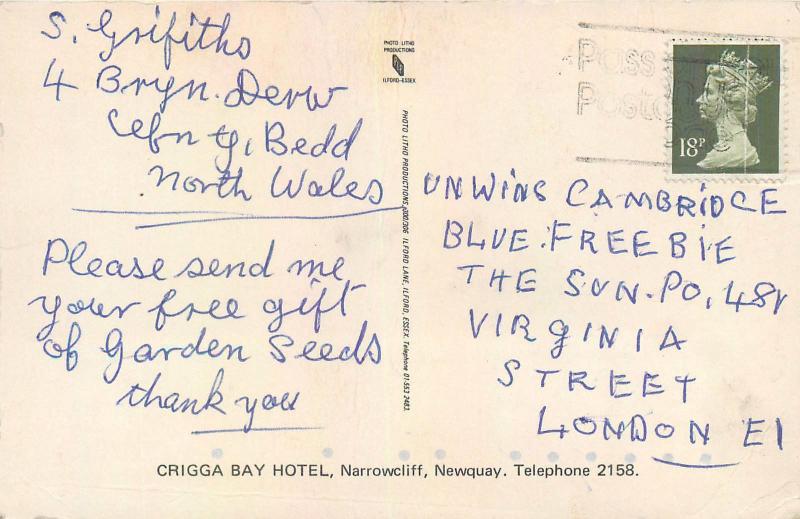 S. Grifiths
4 Bryn. Derw
Cefn y, Bedd
North Wales
Please send me
your free gift
of Garden Seeds
thank you
PHOTO LITHO
PRODUCTIONS
ILFORD-ESSEX
PHOTO LITHO PRODUCTIONS, 200/206 ILFORD LANE, ILFORD, ESSEX. Telephone 01-553 2483.
Pass
18P
UNWINS CAMBRIDGE
BLUE. FREEBIE
THE SUN. PO, 481
VIRGINIA
STREET
LONDON E1
CRIGGA BAY HOTEL, Narrowcliff, Newquay. Telephone 2158.